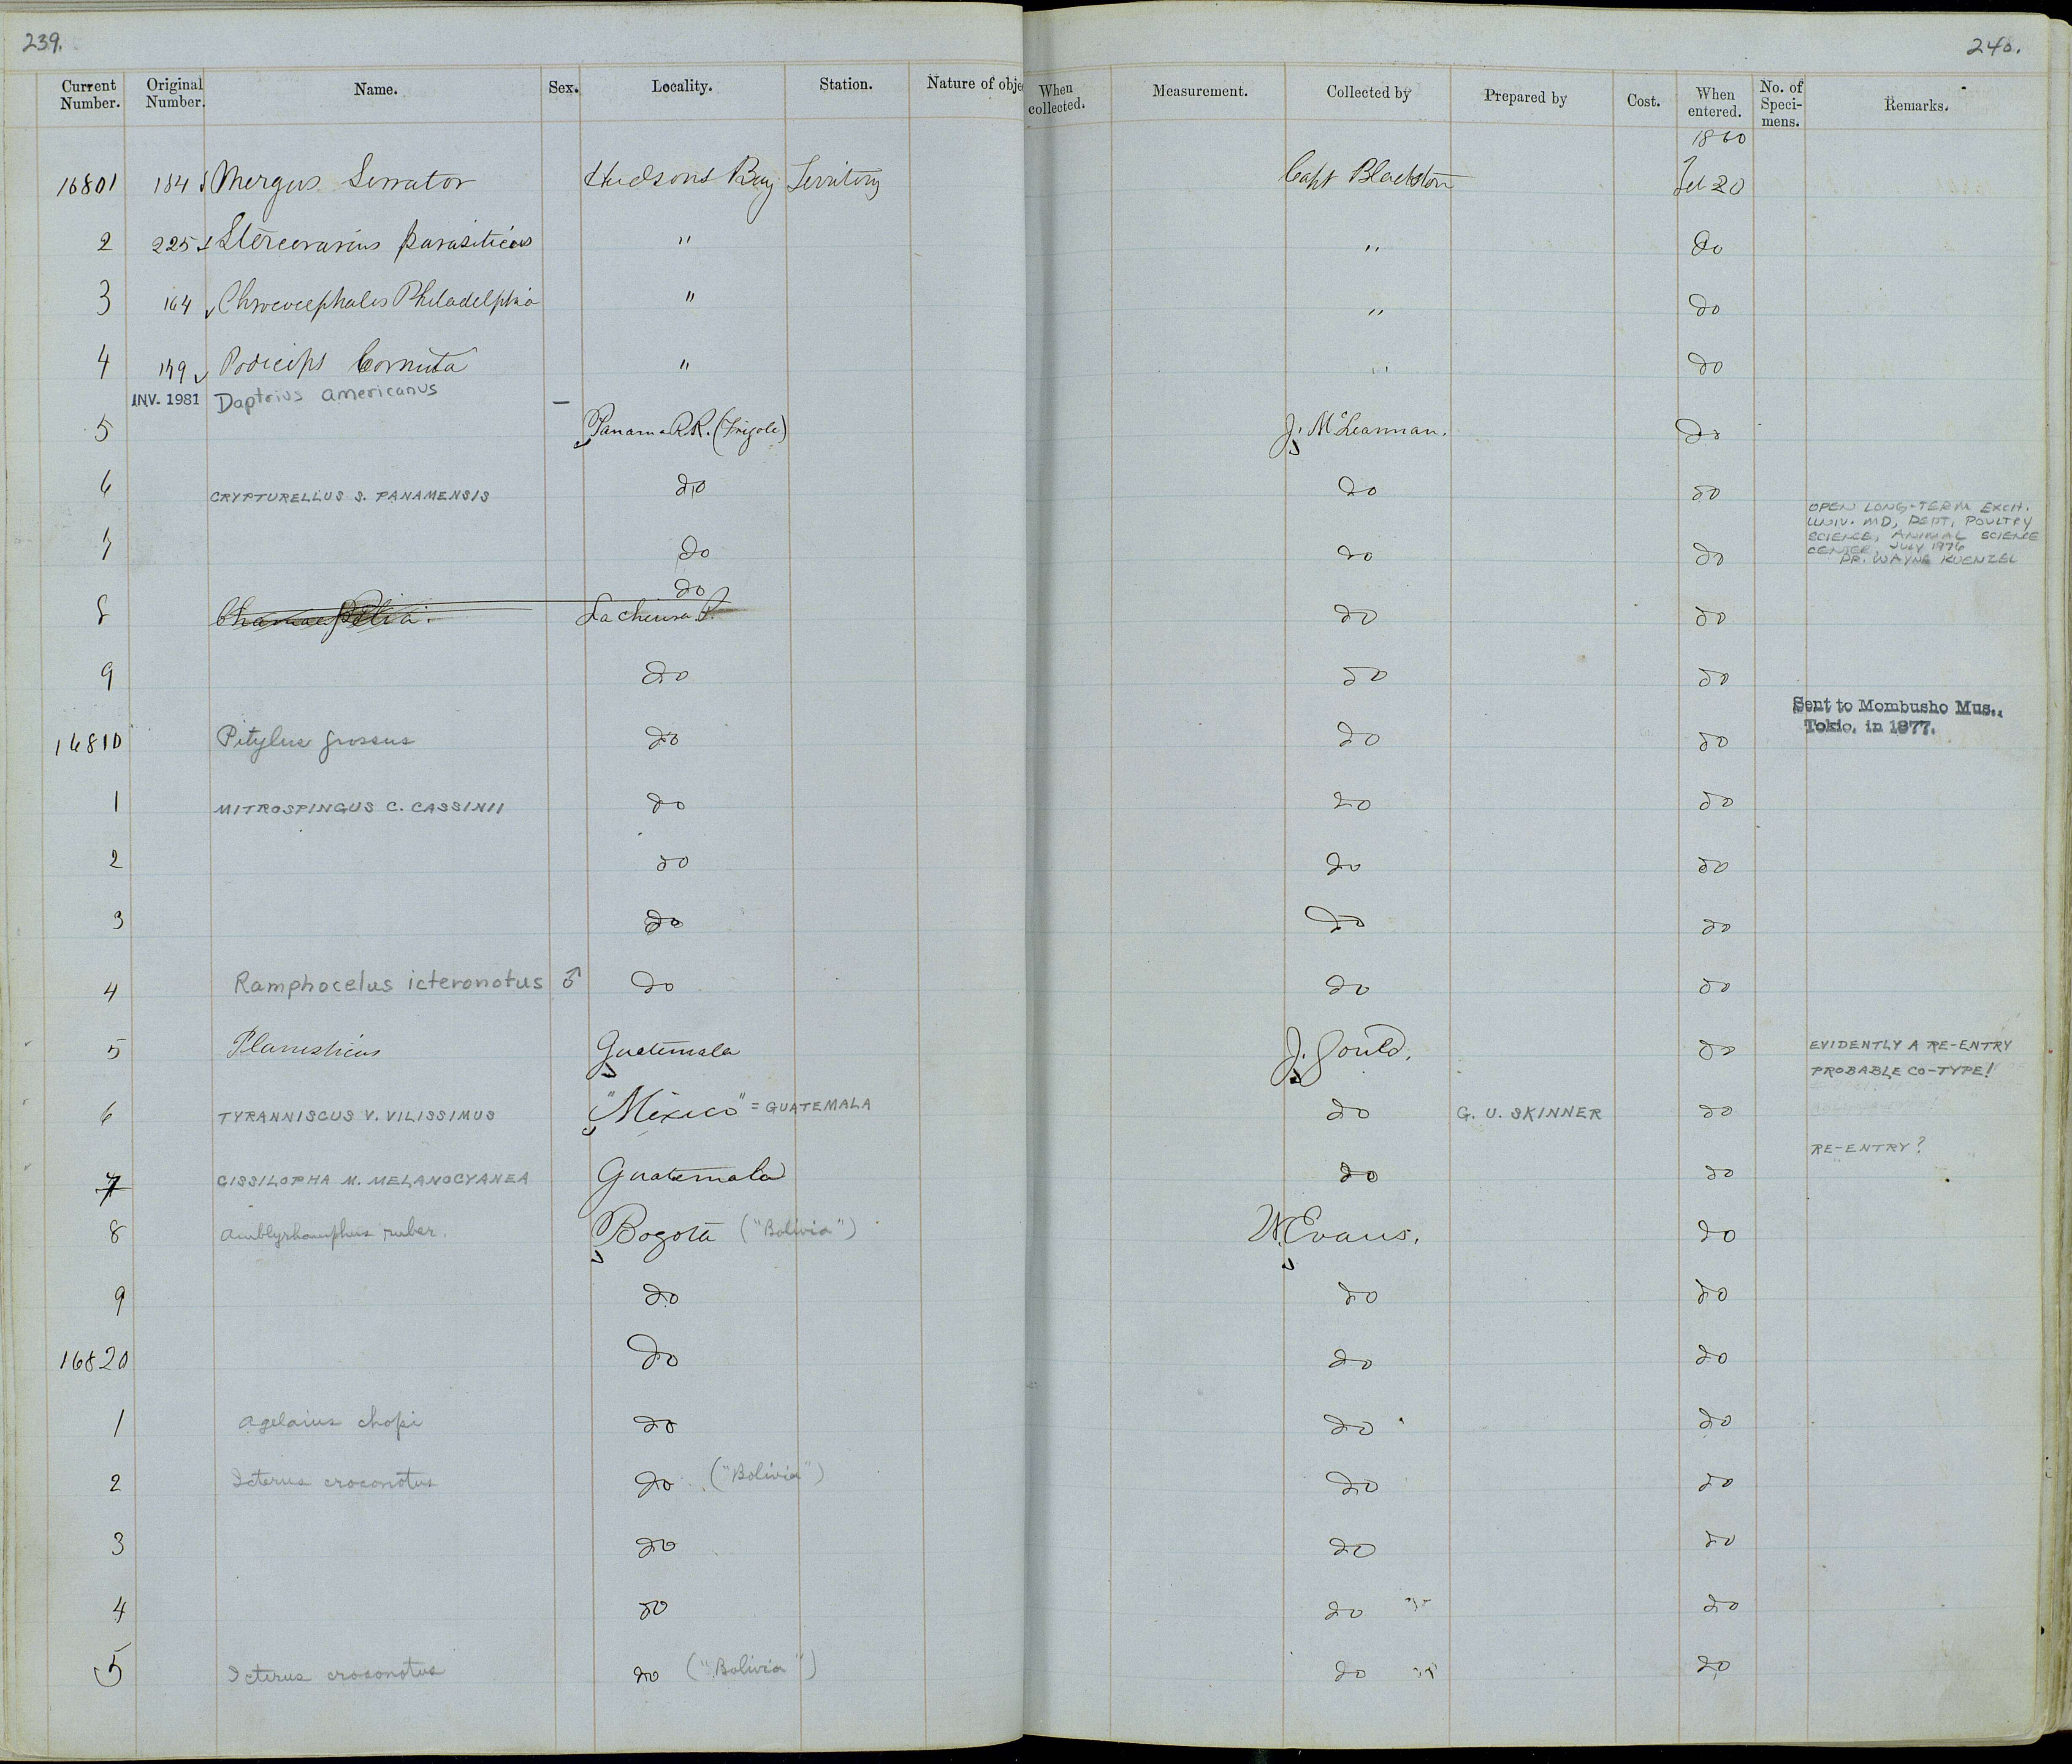 239. 240.
Current Number. Original Number. Name. Sex. Locality. Station. Nature of obje When collected. Measurement. Collected by Prepared by Cost. When entered. No. of Speci-mens. Remarks.
1860
16801 184 Mergus Serrator Hudsons Bay Territory Capt Blackston Feb 20
2 225 Stercorarius parasiticus " " do
3 164 Chroicocephalus Philadelphia " " do
4 149 Podiceps Cornuta " " do
INV. 1981 Daptrius americanus —
5 Panama R.R. (Frijole) J. McLeannan. do
6 CRYPTURELLUS S. PANAMENSIS do do do
OPEN LONG-TERM EXCH.
UNIV. MD, DEPT, POULTRY
SCIENCE, ANIMAL SCIENCE
CENTER, JULY 1976
DR. WAYNE KUENZEL
7 do do do
do
8 Chamaepelia. Lachensa P. do do
9 do do do
Sent to Mombusho Mus.,
Tokio, in 1877.
16810 Pitylus grossus do do do
1 MITROSPINGUS C. CASSINII do do do
2 do do do
3 do do do
4 Ramphocelus icteronotus ♂ do do do
5 Planesticus Guatemala J. Gould. do EVIDENTLY A RE-ENTRY
PROBABLE CO-TYPE!
6 TYRANNISCUS V. VILISSIMUS "Mexico" = GUATEMALA do G. U. SKINNER do
RE-ENTRY?
7 CISSILOPHA M. MELANOCYANEA Guatemala do do
8 Amblyrhamphus ruber. Bogota ("Bolivia") W. Evans. do
9 do do do
16820 do do do
1 Agelaius chopi do do do
2 Icterus croconotus do ("Bolivia") do do
3 do do do
4 do do do
5 Icterus croconotus do ("Bolivia") do do